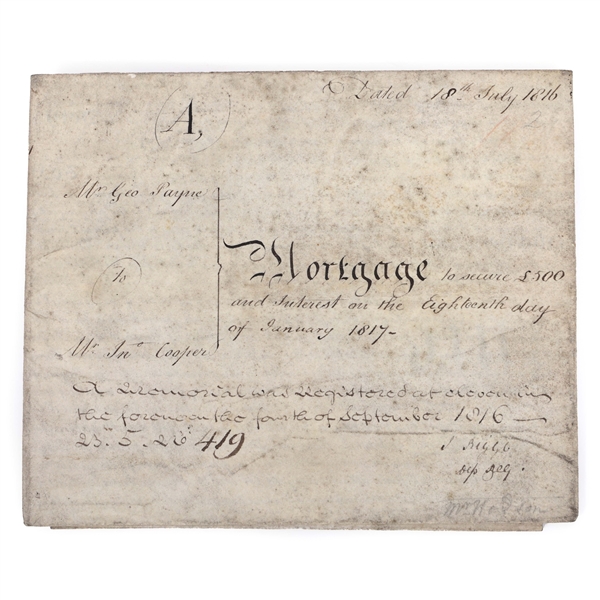 Dated 18th July 1816
A,
2
Mr Geo Payne
To
Mr Jno Cooper
Mortgage to secure £500
and Interest on the Eighteenth day
of January 1817-
A Memorial was Registered at eleven in
the forenoon the fourth of September 1816 —
B. 5. No 419
J Rigge
Dep Reg.